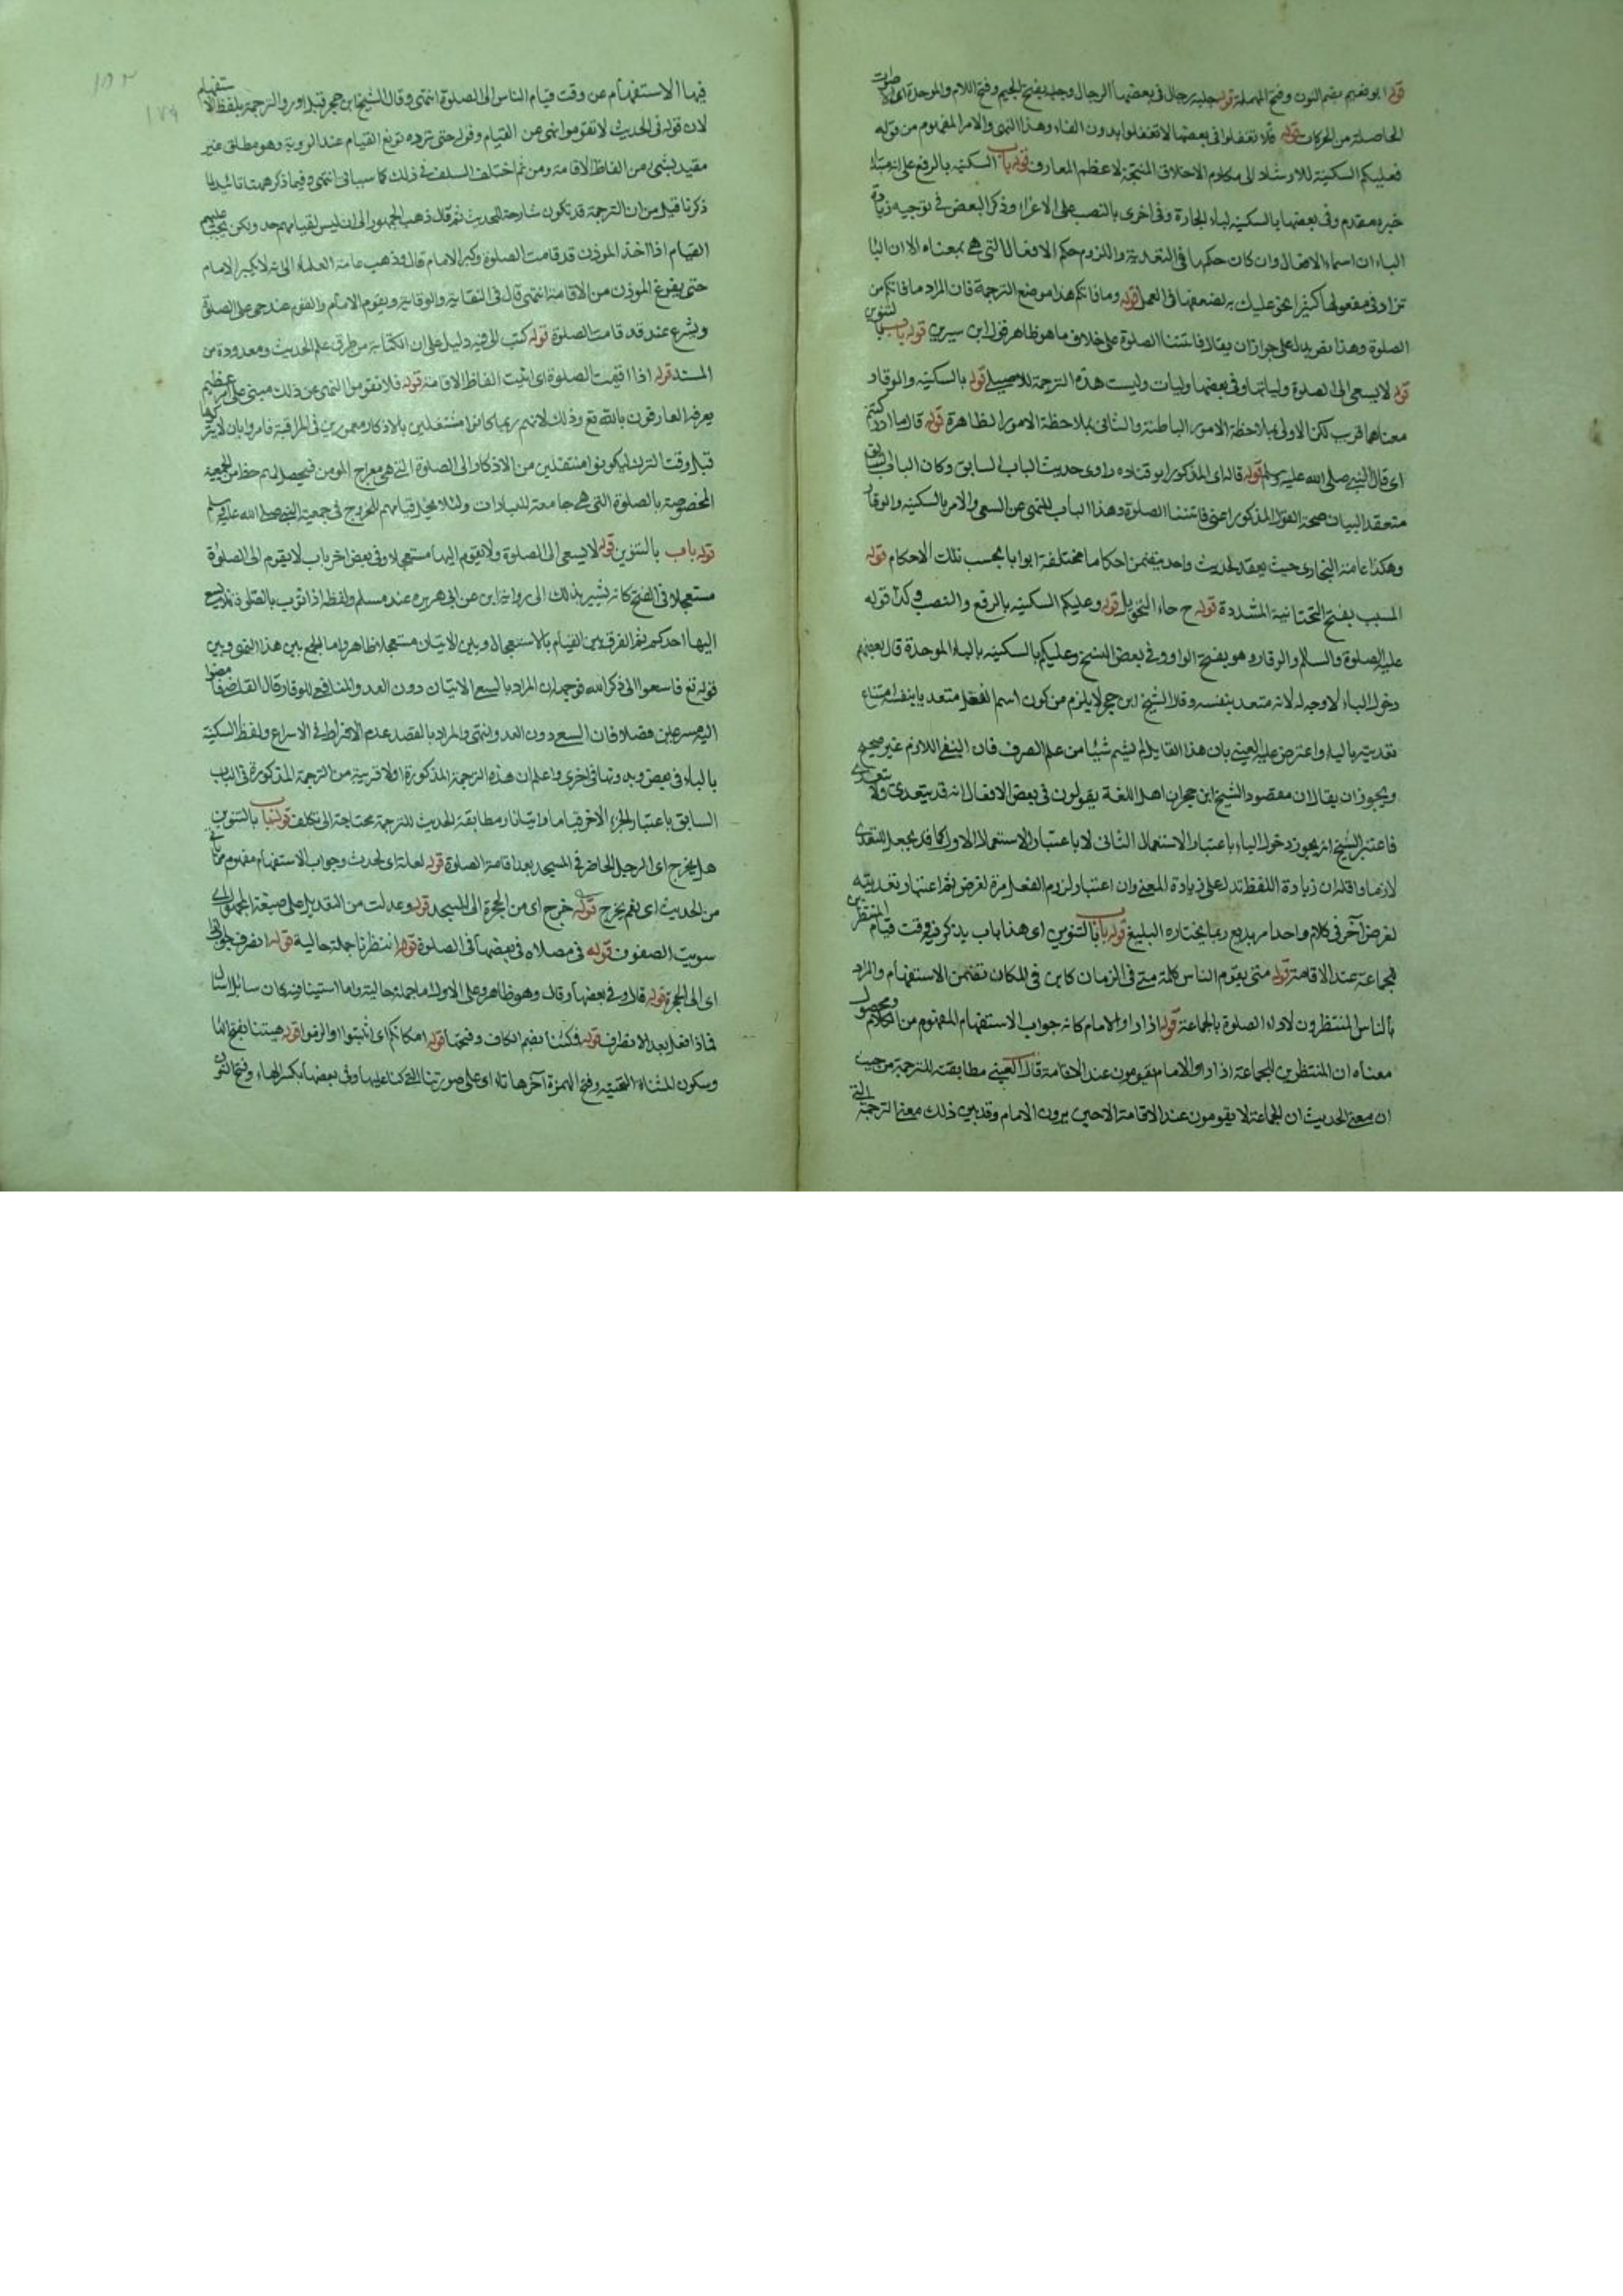 قوله ابو نعيم بضم النون وفتح المهملة قوله جلبة رجال في بعضها الرجال وجلبة بفتح الجيم وفتح اللام والموحدة اي اصوات
الحاصلة من الحركات قوله فلا تفعلوا في بعضها لا تفعلوا بدون الفاء وهذا النهي والامر المفهوم من قوله
فعليكم السكينة للارشاد الى مكارم الاخلاق المنتجة لاعظم المعارف قوله باب السكينة بالرفع على انه مبتدأ
خبره مقدم وفي بعضها بالسكينة لباء الجارة وفي اخرى بالنصب على الاغراء وذكر البعض في توجيه زيادة
الباء ان اسماء الافعال وان كان حكمها في التعدية واللزوم حكم الافعال التي هي بمعناه الا ان البا
تزاد في مفعولها كثيرا نحو عليك به لضعفها في العمل قوله وما فاتكم هذا موضع الترجمة فان المراد ما فاتكم من
الصلوة وهذا يدل على جواز ان يقال فاتتنا الصلوة على خلاف ما هو ظاهر قول ابن سيرين قوله باب بالتنوين
قوله لا يسعى الى الصلوة ولياتها وفي بعضها وليات وليست هذه الترجمة للاصيلي قوله بالسكينة والوقار
معناهما قرب لكن الاولى بملاحظة الامور الباطنة والثاني بملاحظة الامور الظاهرة قوله قال ما ادركتم
اي قال النبي صلى الله عليه وسلم قوله قاله اي المذكور ابو قتاده راوي حديث الباب السابق وكان الباب السابق
منعقد البيان صحة القول المذكور اعني فاتتنا الصلوة وهذا الباب للنهي عن السعي والامر بالسكينة والوقار
وهكذا عامة البخاري حيث يعقد لحديث واحد يتضمن احكاما مختلفة ابوابا بحسب تلك الاحكام قوله
المسيب بفتح التحتانية المشددة قوله ح حاء التحويل قوله وعليكم السكينة بالرفع والنصب وكذا قوله
عليه الصلوة والسلام والوقار وهو بفتح الواو وفي بعض النسخ وعليكم بالسكينة بالباء الموحدة قال بعضهم
دخول الباء لا وجه له لانه متعد بنفسه وقال الشيخ ابن حجر لا يلزم من كون اسم الفعل متعديا بنفسه امتناع
تعديته بالباء واعترض عليه العيني بان هذا القايل لم يشم شيئا من علم الصرف فان النفي اللازم غير صحيح
ويجوز ان يقال ان مقصود الشيخ ابن حجر ان اهل اللغة يقولون في بعض الافعال انه قد يتعدى ولا يتعدى
فاعتبر الشيخ انه يجوز دخول الباء باعتبار الاستعمال الثاني لا باعتبار الاستعمال الاول كما قد يجعل المتعدى
لازما واقله ان زيادة اللفظ تدل على زيادة المعنى وان اعتبار لزوم الفعل مرة لغرض ثم اعتبار تعديته
لغرض آخر في كلام واحد امر بديع ربما يختاره البليغ قوله باب بالتنوين اي هذا باب يذكر فيه وقت قيام المنتظرين
للجماعة عند الاقامة قوله متى يقوم الناس كلمة متى في الزمان كاين في المكان تتضمن الاستفهام والمراد
بالناس المنتظرون لاداء الصلوة بالجماعة قوله اذا راوا الامام كانه جواب الاستفهام المفهوم من الكلام ومحصول
معناه ان المنتظرين للجماعة اذا راوا الامام يقومون عند الاقامة قال العيني مطابقته للترجمة من حيث
ان معنى الحديث ان الجماعة لا يقومون عند الاقامة الا حين يرون الامام وقد بين ذلك معنى الترجمة التي
١٧٩
فيها الاستفهام عن وقت قيام الناس الى الصلوة انتهى وقال الشيخ ابن حجر قيل اورد الترجمة بلفظ الاستفهام
لان قوله في الحديث لا تقوموا نهي عن القيام وقوله حتى تروه تسويغ القيام عند الروية وهو مطلق غير
مقيد بشيء من الفاظ الاقامة ومن ثم اختلف السلف في ذلك كما سياتي انتهى وفيما ذكر همنا تائيد لما
ذكرنا قبل من ان الترجمة قد تكون شارحة للحديث ثم قال ذهب الجمهور الى ان ليس لقيامهم حد ولكن يجب عليهم
القيام اذا اخذ الموذن قد قامت الصلوة وكبر الامام قال وذهب عامة العلماء الى انه لا يكبر الامام
حتى يفرغ الموذن من الاقامة انتهى قال في النقاية والوقاية ويقوم الامام والقوم عند حي على الصلوة
ويشرع عند قد قامت الصلوة قوله كتب الي فيه دليل على ان الكتابة من طرق علم الحديث ومعدودة من
المسند قوله اذا اقيمت الصلوة اي اتيت الفاظ الاقامة قوله فلا تقوموا النهي عن ذلك مبني على امر عظيم
يعرفه العارفون بالله تع وذلك لانهم ربما كانوا مشتغلين بالاذكار مغمورين في المراقبة فامروا بان لا يتركها
قبل وقت الترك ليكونوا منتقلين من الاذكار الى الصلوة التي هي معراج المومن فيحصل لهم حظ من الجمعية
المخصوصة بالصلوة التي هي جامعة للعبادات ولئلا يخل قيامهم للخروج في جمعية النبي صلى الله عليه وسلم
قوله باب بالتنوين قوله لا يسعى الى الصلوة ولا يقوم اليها مستعجلا وفي بعض اخر باب لا يقوم الى الصلوة
مستعجلا في الفتح كانه يشير بذلك الى رواية ابن عن ابي هريره عند مسلم ولفظه اذا ثوب بالصلوة فلا يسع
اليها احدكم ثم الفرق بين القيام بالاستعجال وبين الاتيان مستعجلا ظاهر واما الجمع بين هذا النهي وبين
قوله تع فاسعوا الى ذكر الله هو حمل ان المراد بالسعي الاتيان دون العدو المنافي للوقار قال القاضي
اليه مسرعين قصدا فان السعي دون العدو انتهى والمراد بالقصد عدم الافراط في الاسراع ولفظ السكينة
بالباء في بعض وبدونها في اخرى واعلم ان هذه الترجمة المذكورة اولا قريبة من الترجمة المذكورة في الباب
السابق باعتبار الجزء الاخر قياما واتيانا ومطابقة الحديث للترجمة محتاجة الى تكلف قوله باب بالتنوين
هل يخرج اي الرجل الحاضر في المسجد بعد اقامة الصلوة قوله لعلة اي لحديث وجواب الاستفهام مفهوم مما ياتي
من الحديث اي نعم يخرج قوله خرج اي من الحجرة الى المسجد قوله وعدلت من التعديل على صيغة المجهول اي
سويت الصفوف قوله في مصلاه في بعضها في الصلوة قوله انتظرنا جملة حالية قوله انصرف جواب اذا
اي الى الحجرة قوله قال وفي بعضها وقال وهو ظاهر وعلى الاول اما جملة حالية واما استينافية كان سائلا سال
فماذا فعل بعد الانصراف قوله فمكثنا بضم الكاف وفتحها قوله امكانكم اي اثبتوا والزموا قوله هيئتنا بفتح الها
وسكون المثناة التحتية وفتح الهمزة آخرها تاء اي على صورتنا التي كنا عليها وفي بعضها بكسر الهاء وفتح النون